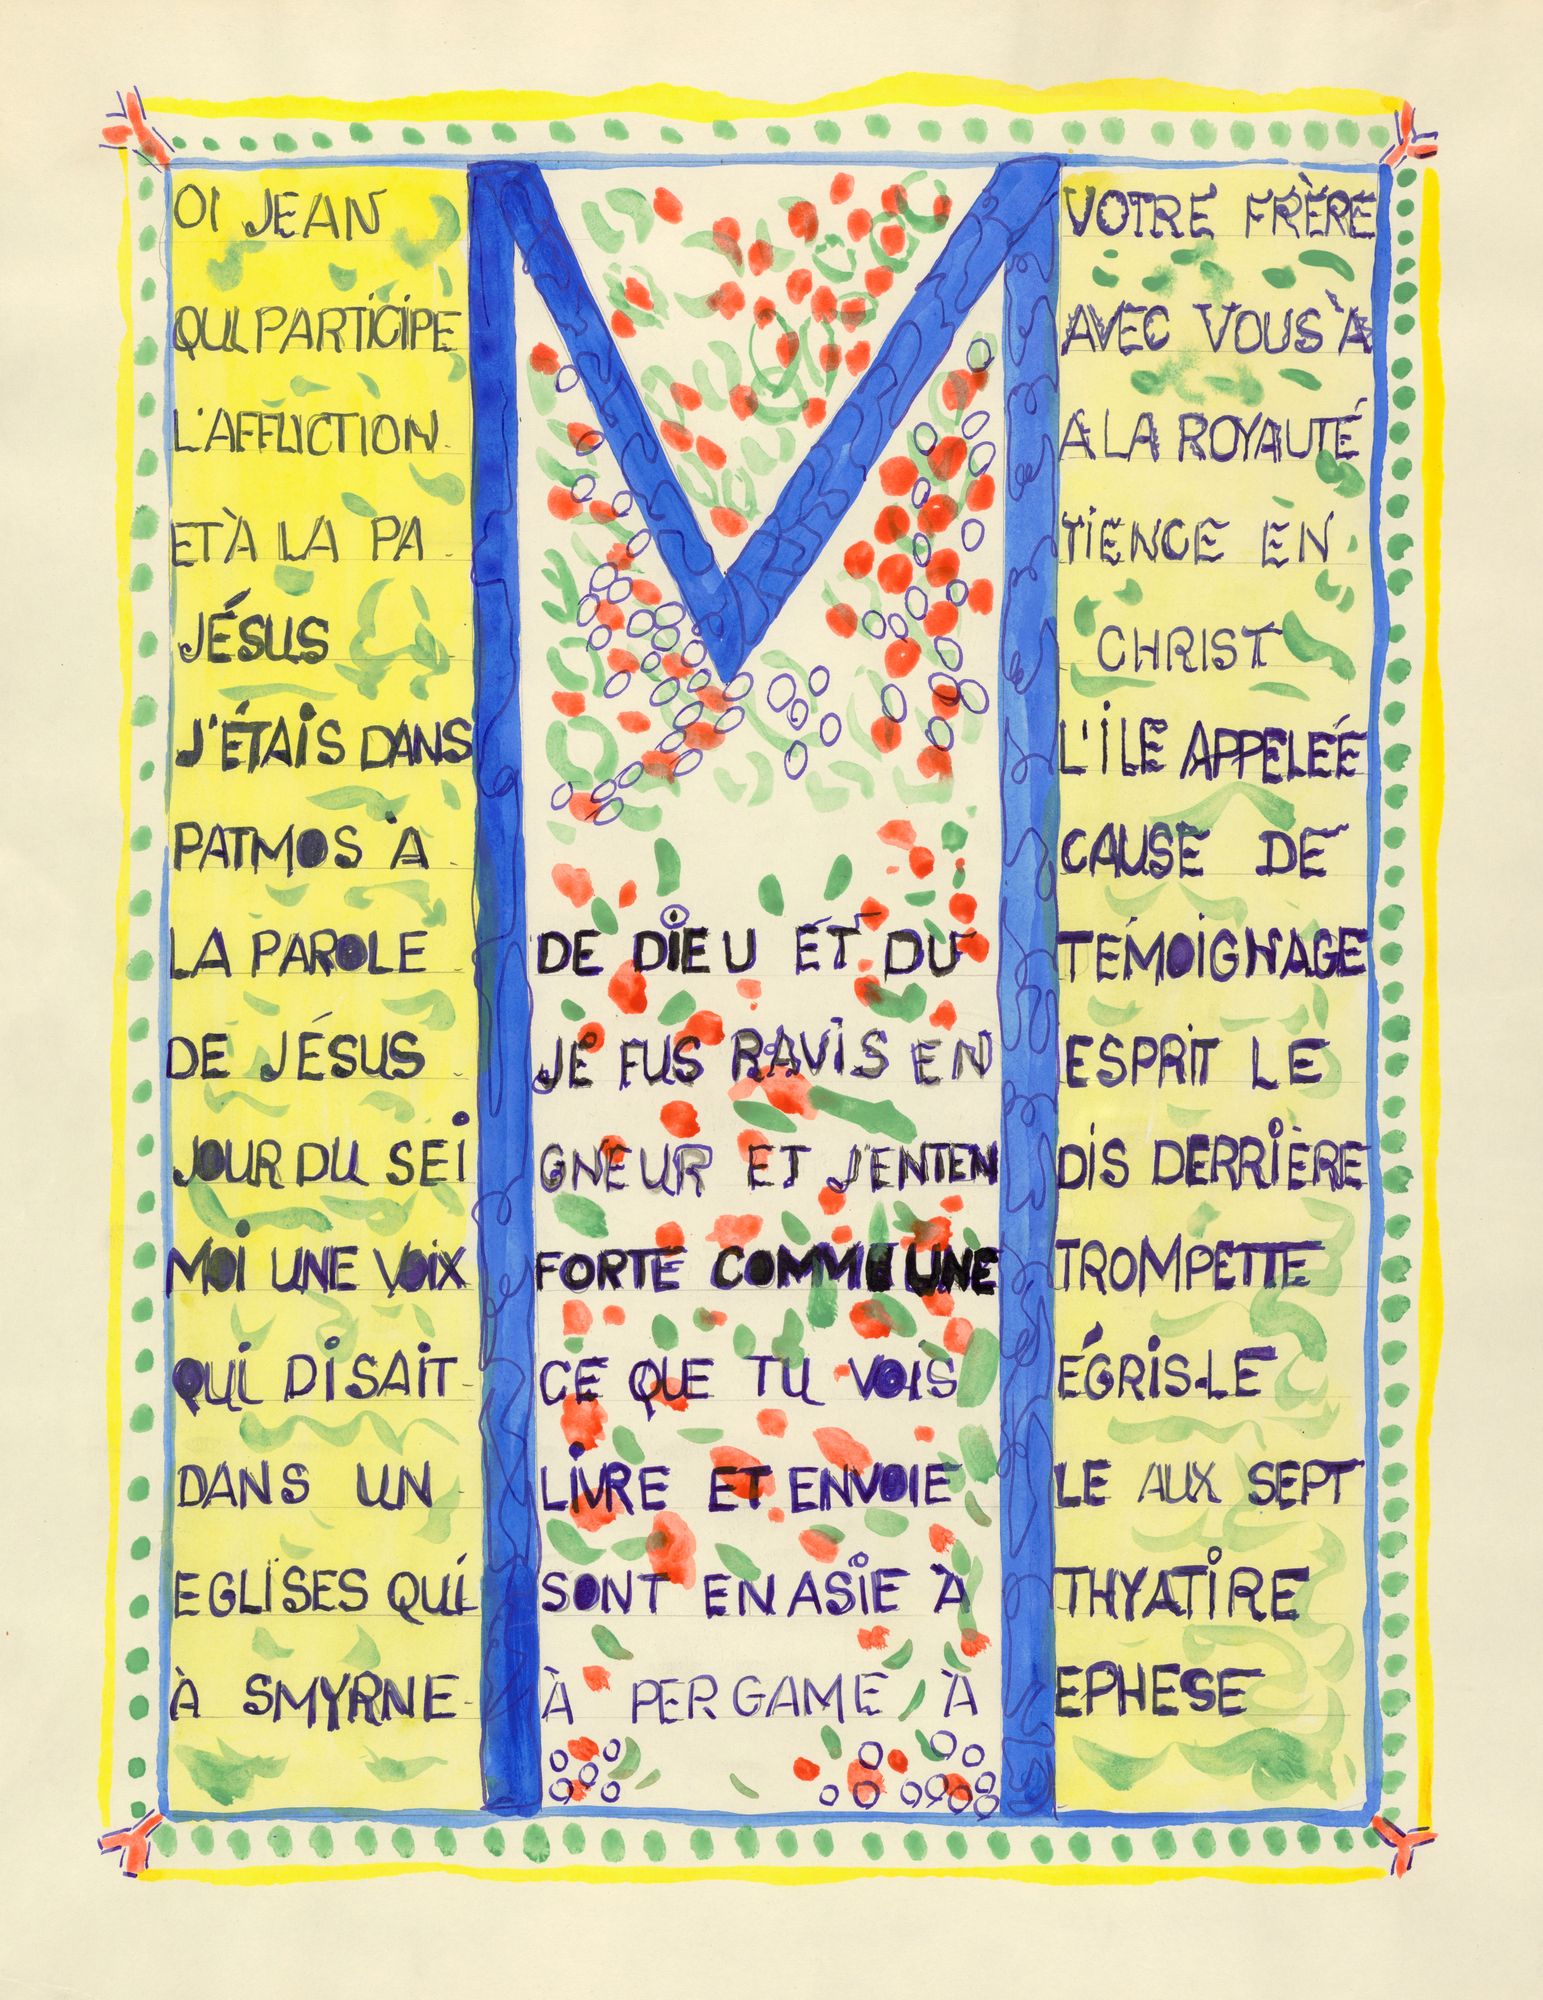 M
OI JEAN VOTRE FRÈRE
QUI PARTICIPE AVEC VOUS À
L'AFFLICTION A LA ROYAUTÉ
ET À LA PA TIENCE EN
JÉSUS CHRIST
J'ÉTAIS DANS L'ILE APPELEÉ
PATMOS À CAUSE DE
LA PAROLE DE DIEU ET DU TÉMOIGNAGE
DE JÉSUS JE FUS RAVIS EN ESPRIT LE
JOUR DU SEI GNEUR ET J'ENTEN DIS DERRIÈRE
MOI UNE VOIX FORTE COMME UNE TROMPETTE
QUI DISAIT CE QUE TU VOIS ÉGRIS-LE
DANS UN LIVRE ET ENVOIE LE AUX SEPT
EGLISES QUI SONT EN ASIE À THYATIRE
À SMYRNE À PERGAME À EPHESE